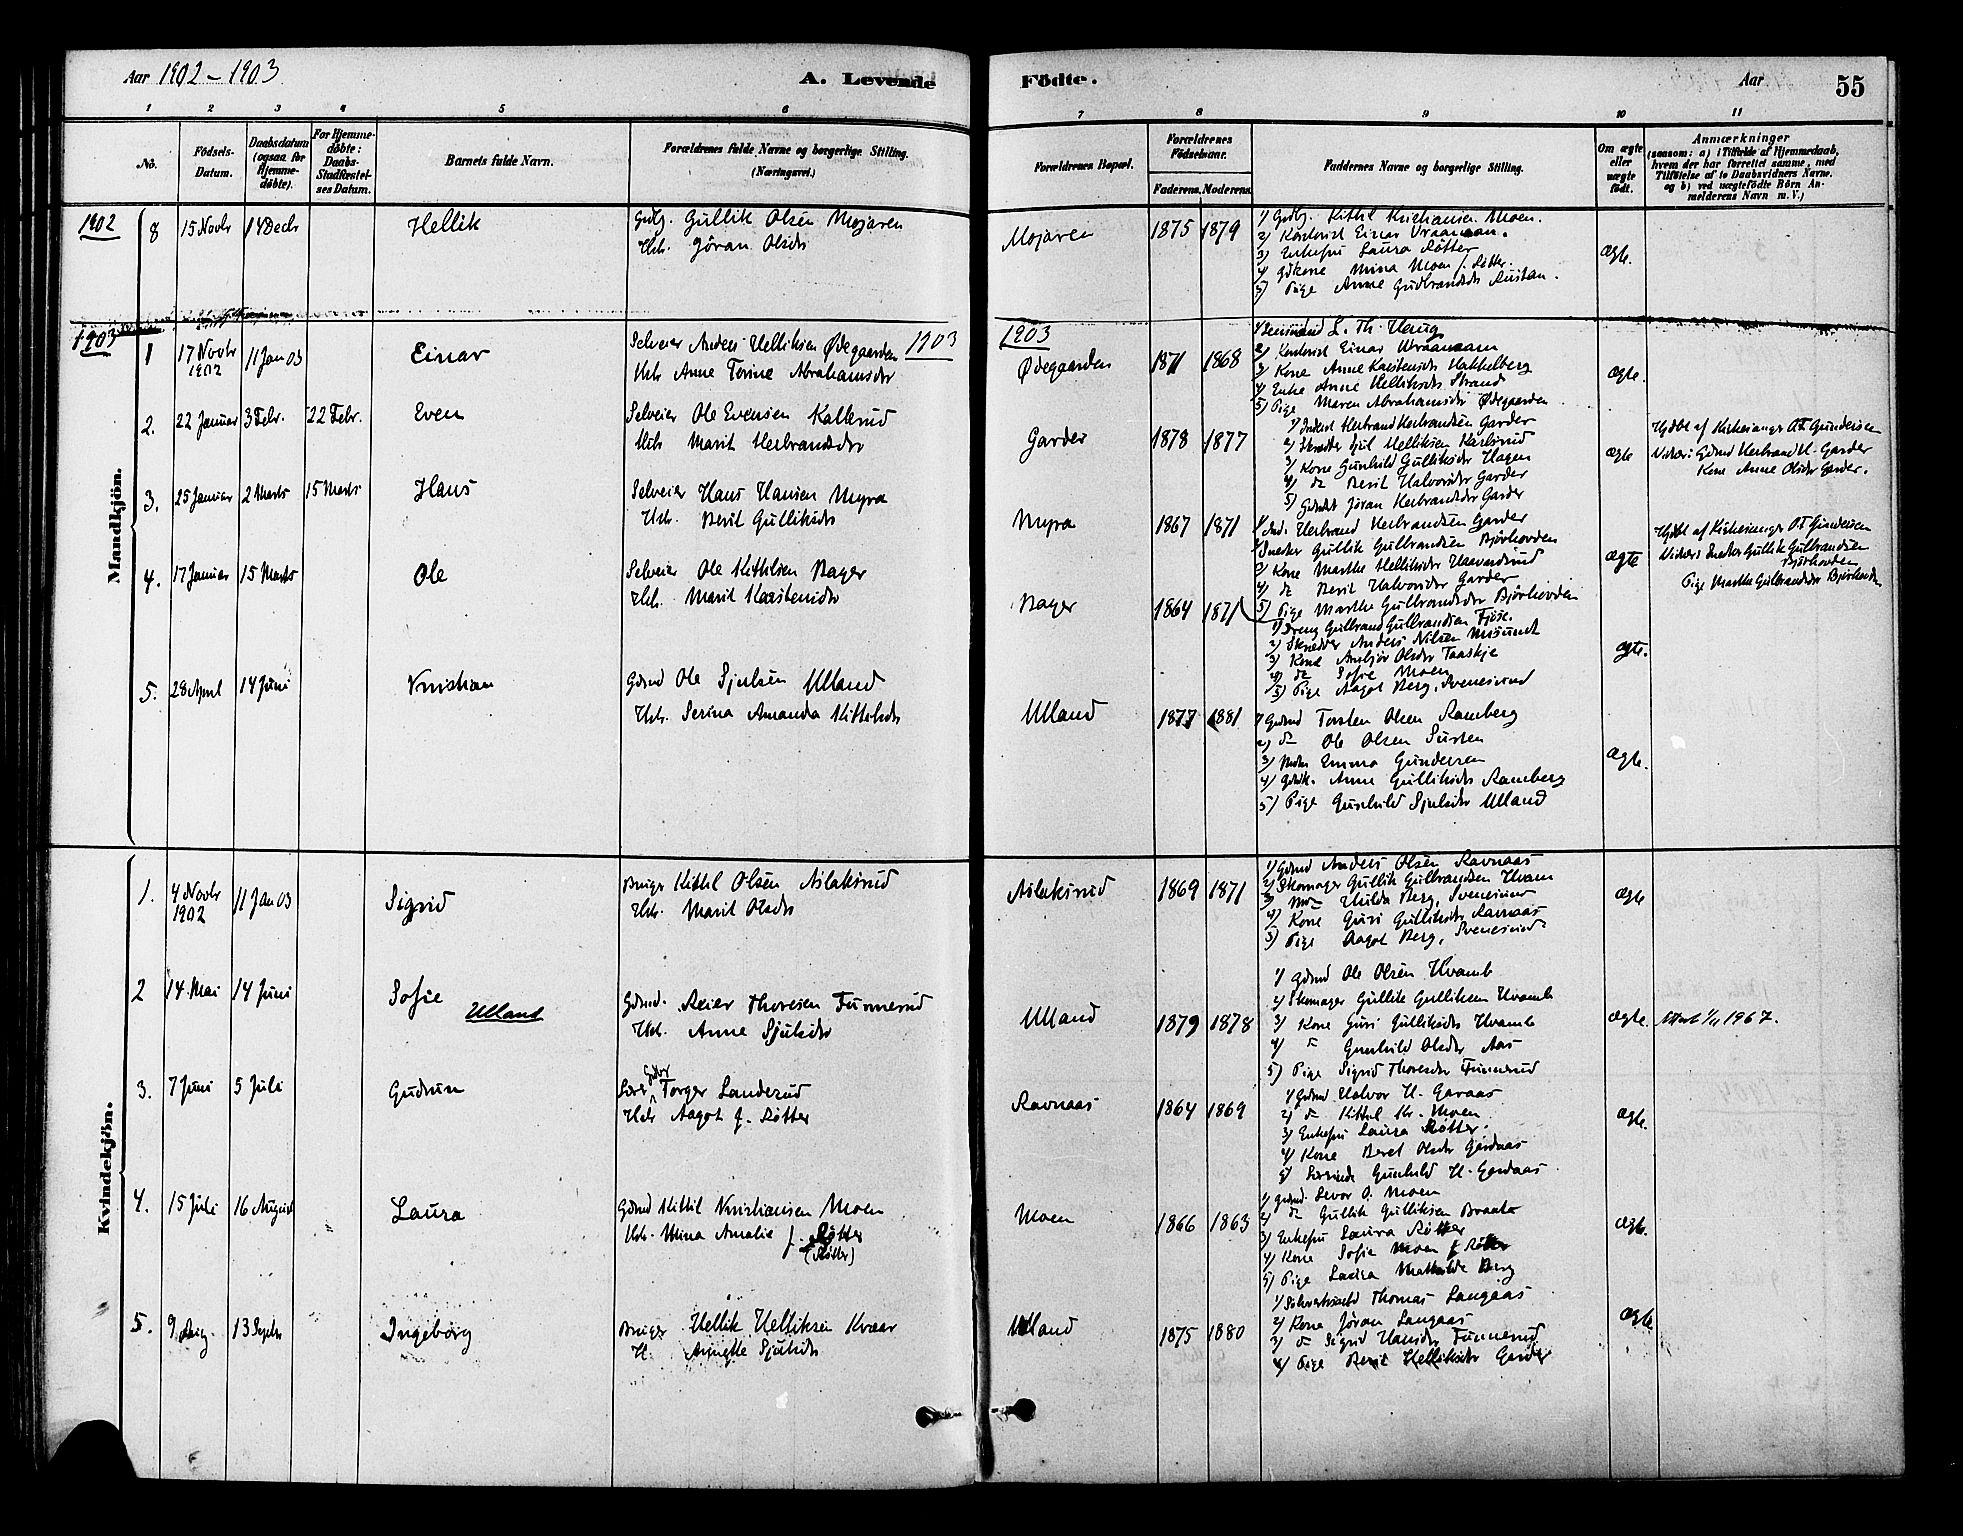 Aar 1902-1903
A. Levende
Födte.
Aar
55
1 2 3 4 5 6 7 8 9 10 11
No.
Födsels-Datum.
Daabsdatum (ogsaa for Hjemme-döbte).
For Hjemme-döbte: Daabs-Stadfæstel-ses Datum.
Barnets fulde Navn.
Forældrenes fulde Navne og borgerlige Stilling. (Næringsvei.)
Forældrenes Bopæl.
Forældrenes Födselsaar.
Faderens. Moderens.
Faddernes Navne og borgerlige Stilling.
Om ægte eller uægte født.
Anmærkninger
(saasom: a) i Tilfælde af Hjemmedaab, hvem der har forrettet samme, med Tilföielse af to Daabsvidners Navne. og b) ved uægtefödte Börn An-melderens Navn m. V.)
Mandkjön.
1902
8 15 Novbr 14 Decbr Hellik
Gullik Olsen Mojaren
Jöran Olsdr
Mojaren 1875 1879
1) Gdbr. Kittil Kristiansen Moen.
2) Einar Vraaman.
3) Enkefru Laura Røtter
4) Mina Moen f. Røtter.
5) Pige Anne Gudbrandsdr Rustan.
ægte.
1903
1 17 Novbr 1902 11 Jan 03 Einar
Selveier Anders Helliksen Ødegaarden 1903
Hstr. Anne Torine Abrahamsdr
1903
Ødegaarden 1871 1868
1) L. Th. Haug
2) Einar Vraamann
3) Kone Anne Karstensdr Hakkelberg
4) Enke Anne Helliksdr Strand
5) Pige Maren Abrahamsdr Ødegaarden
ægte.
2. 22 Januar 3 Febr. 22 Febr. Even
Selveier Ole Evensen Kallerud
Hstr Marit Herbrandsdr
Garder 1878 1877
1) Herbrand Herbrandsen Garder
2) Helliksen Karlsrud
3) Kone Gunhild Gulliksdr Hagen
4) do Berit Halvorsdr Garder
5) Jöran Herbrandsdr Garder
ægte
Hjdbt af Kirkesanger O.T. Gundersen
Vidner: Gdmd Herbrand H. Garder
Kone Anne Olsdr Garder.
3. 25 Januar 2 Marts 15 Marts Hans
Selveier Hans Hansen Myra
Hstr. Berit Gulliksdr
Myra 1867 1871
1) Herbrand Herbrandsen Garder
2) Snedker Gullik Gulbrandsen Bjørhovden
3) Kone Marthe Helliksdr
4) do Berit Halvorsdr Garder
5) Pige Marthe Gulbrandsdr Bjørhovden
ægte
Hjdbt af Kirkesanger O.T. Gundersen
Vidner: Snedker Gullik Gulbrandsen Bjørhovden
Pige Marthe Gulbrandsdr Bjørhovden
4. 17 Januar 15 Marts Ole
Selveier Ole Kittilsen Bager
Hstr. Marit Karstensdr
Bager 1864 1871
1) Dreng Gulbrand Gulbrandsen Fjøse.
2) Skrædder Anders Nilsen Misund
3) Kone Ambjør Olsdr Taaskje
4) do Sofie Moen
5) Pige Aagot Berg, Svenesund
ægte.
5. 28 April 14 Juni Kristian
Gdmd Ole Sjulsen Ulland
Hstr. Serina Amanda Kittilsdr
Ulland 1877 1881
1) Gdmd Torsten Olsen Ramberg
2) do Ole Olsen
3) Emma Gundersen
4) Gdmk. Anne Gulliksdr Ramberg
5) Pige Gunhild Sjulsdr Ulland
ægte.
Kvindekjön.
1. 4 Novbr 1902 11 Jan 03 Sigrid
Bruger Kittil Olsen Aslaksrud
Hstr. Marit Olsdr
Aslaksrud 1869 1871
1) Gdmd Anders Olsen Ravnaas
2) Skomager Gullik Gulbrandsen Hvam
3) Hilda Berg, Svenesund
4) Kone Guri Gulliksdr Ravnaas
5) Pige Aagot Berg, Svenesund
ægte
2 14 Mai 14 Juni Sofie Ulland
Gdmd. Reier Thoresen Funnerud
Hstr. Anne Sjulsdr
Ulland 1879 1878
1) Gdmd Ole Olsen Hvamb
2) Skomager Gullik Gulliksen Hvamb
3) Kone Guri Gulliksdr Hvamb
4) do Gunhild Olsdr Aas
5) Pige Sigrid Thoresdr Funnerud
ægte.
Attest 1/11 1967.
3. 7 Juni 5 Juli Gudrun
Lærer Gdbr Torger Landerud
Hstr Aagot f. Røtter
Ravnaas 1864 1869
1) Gdmd Halvor H. Garaas
2) do Kittil Kr. Moen
3) Enkefru Laura Røtter.
4) Kone Beret Olsdr Gardaas
5) Gunhild H. Gardaas
ægte.
4. 15 Juli 16 August Laura
Gdmd Kittil Kristiansen Moen
Hstr. Mina Amalie f. Røtter
(Røtter)
Moen 1866 1863
1) Gdmd. Sevor O. Moen
2) do Gullik Gulliksen Braata
3) Enkefru Laura Røtter
4) Kone Sofie Moen f. Røtter
5) Pige Laura Mathilde Berg
ægte.
5. 9 Aug. 13 Septbr Ingeborg
Bruger Hellik Helliksen Kvaar
H. Annette Sjulsdr
Ulland 1875 1880
1) Thomas Langaas
2) Kone Jöran Langaas
3) do Sigrid Hansdr Funnerud
4) Pige Berit Helliksdr Garder
ægte